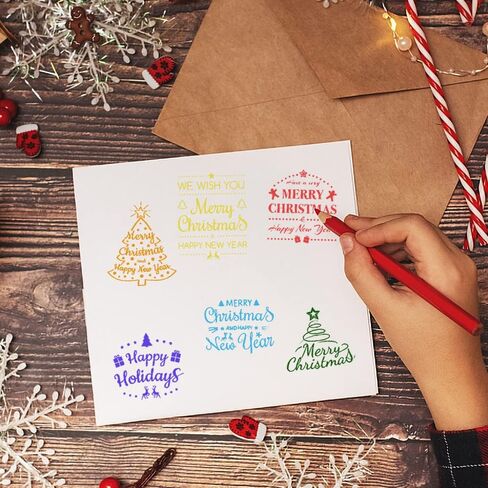 Merry
Christmas
and
Happy New Year
WE WISH YOU
Merry
Christmas
&
HAPPY NEW YEAR
Have a very
MERRY
CHRISTMAS
&
Happy New Year
Happy
Holidays
MERRY
Christmas
AND HAPPY
New Year
Merry
Christmas